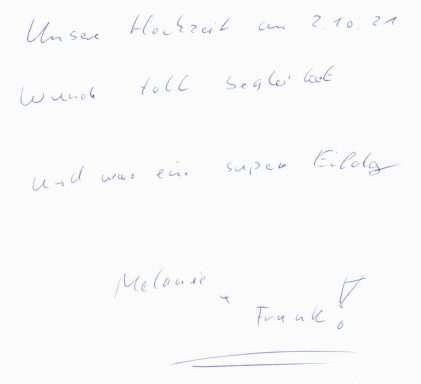 Unsere Hochzeit am 2.10.21
wurde toll begleitet
und war ein super Erfolg
Melanie +
Frank!